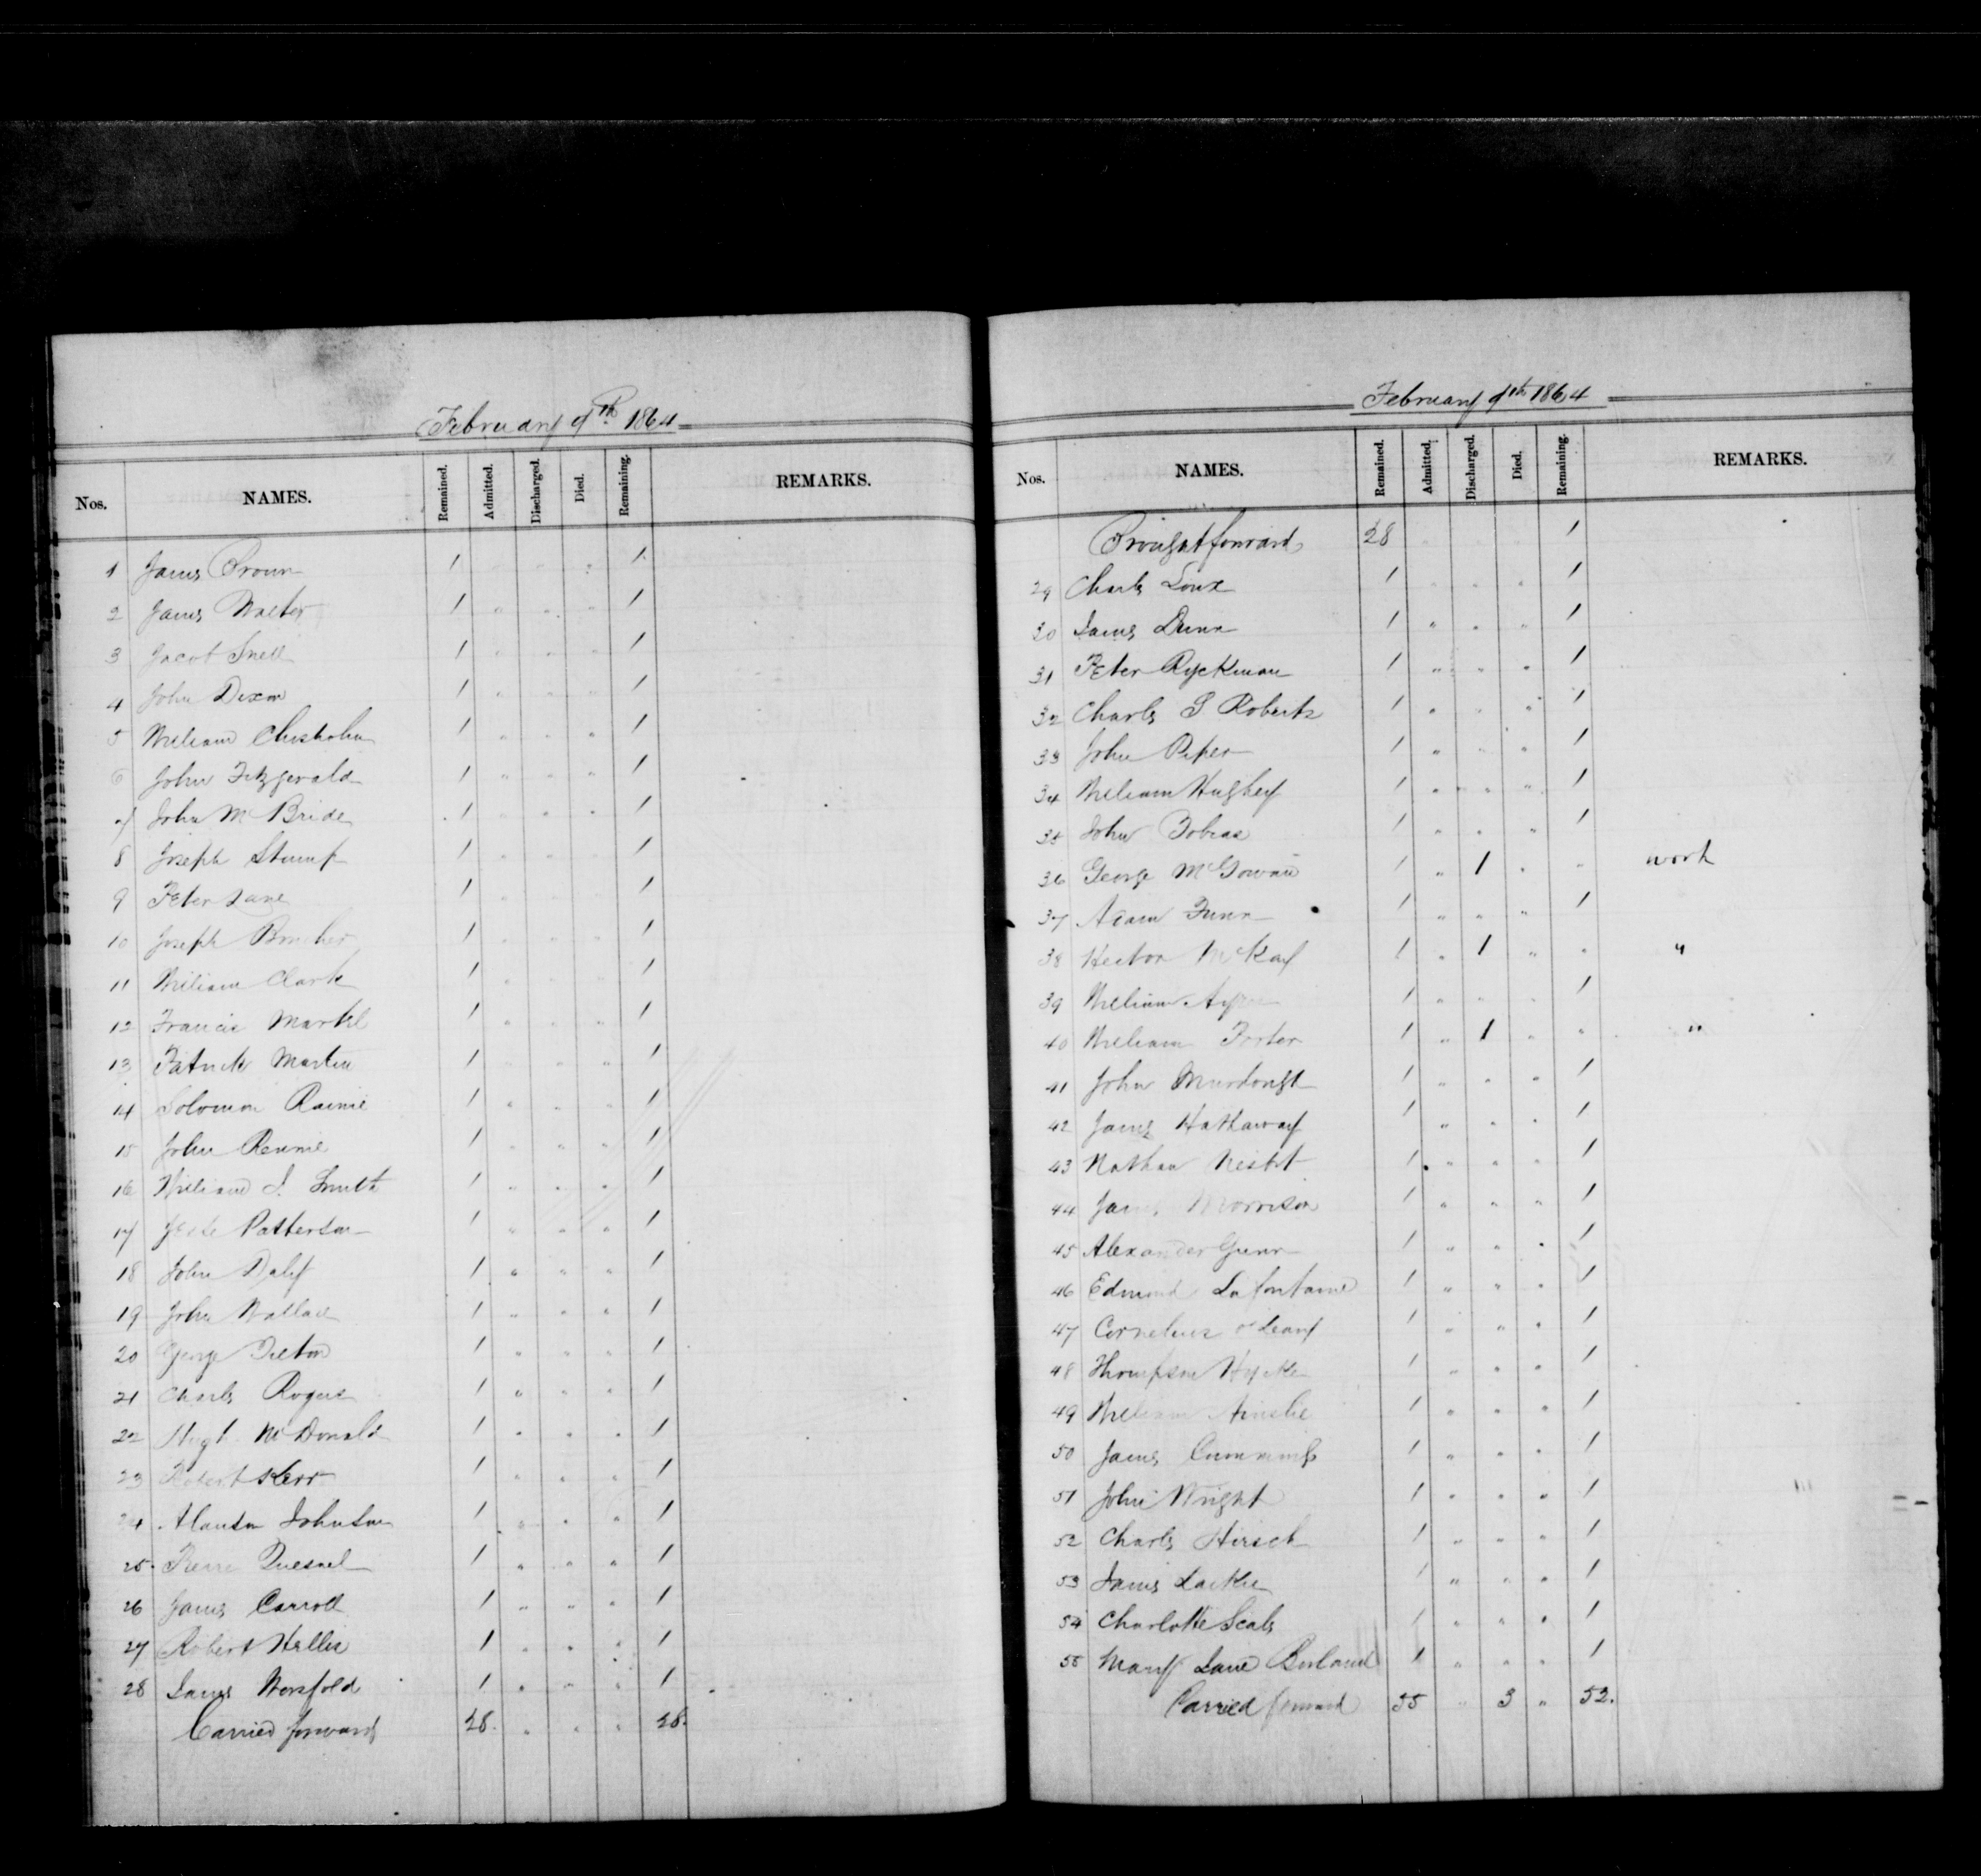 February 9th 1864
Nos. NAMES. Remained. Admitted. Discharged. Died. Remaining. REMARKS.
1 James Brown 1 " " " 1
2 James Walter 1 " " " 1
3 Jacob Snell 1 " " " 1
4 John Dixon 1 " " " 1
5 William Chisholm 1 " " " 1
6 John Fitzgerald 1 " " " 1
7 John McBride 1 " " " 1
8 Joseph Stump 1 " " " 1
9 Peter Lane 1 " " " 1
10 Joseph 1 " " " 1
11 William Clark 1 " " " 1
12 Francis Markl 1 " " " 1
13 Patrick Martin 1 " " " 1
14 Solomon Rainie 1 " " " 1
15 John Rennie 1 " " " 1
16 William J. Smith 1 " " " 1
17 Jesse Patterson 1 " " " 1
18 John Daly 1 " " " 1
19 John Wallace 1 " " " 1
20 George Tilton 1 " " " 1
21 Charles Rogers 1 " " " 1
22 Hugh McDonald 1 " " " 1
23 Robert Kerr 1 " " " 1
24 Alanson Johnson 1 " " " 1
25 Pierre Quesnel 1 " " " 1
26 James Carroll 1 " " " 1
27 Robert Hellis 1 " " " 1
28 James Worsfold 1 " " " 1
Carried forward 28. " " " 28.
February 9th 1864
Nos. NAMES. Remained. Admitted. Discharged. Died. Remaining. REMARKS.
Brought forward 28 1
29 Charles Loux 1 " " " 1
30 James Dunn 1 " " " 1
31 Peter Ryckman 1 " " " 1
32 Charles S Roberts 1 " " " 1
33 John Piper 1 " " " 1
34 William Hughey 1 " " " 1
35 John Tobias 1 " " " 1
36 George McGowan 1 " 1 " " work
37 Adam Funn 1 " " " 1
38 Hector McKay 1 " 1 " " "
39 William 1 " " " 1
40 William Foster 1 " 1 " " "
41 John Murdough 1 " " " 1
42 James Hathaway 1 " " " 1
43 Nathan Nesbit 1 " " " 1
44 James Morrison 1 " " " 1
45 Alexander Gunn 1 " " " 1
46 Edmond Lafontaine 1 " " " 1
47 Cornelius O'Leary 1 " " " 1
48 Thompson 1 " " " 1
49 William Ainslie 1 " " " 1
50 James Cummings 1 " " " 1
51 John Wright 1 " " " 1
52 Charles Hirsch 1 " " " 1
53 James Lackie 1 " " " 1
54 Charlotte Seals 1 " " " 1
55 Mary Jane Borland 1 " " " 1
Carried forward 55 " 3 " 52.